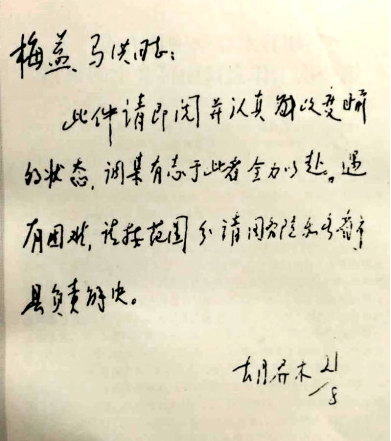 梅益 马洪同志：
此件请即阅并认真改变目前
的状态，调集有志于此者全力以赴。遇
有困难，请按范围分请国务院和各省市
县负责解决。
胡乔木 21/8